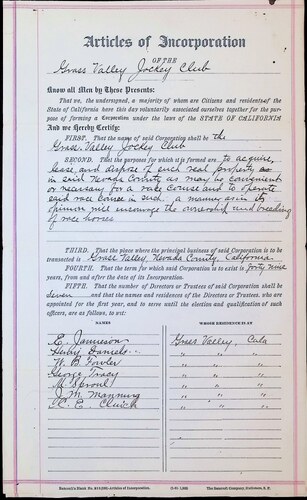 Articles of Incorporation
OF THE
Grass Valley Jockey Club
Know all Men by These Presents:
That we, the undersigned, a majority of whom are Citizens and residents of the
State of California have this day voluntarily associated ourselves together for the pur-
pose of forming a Corporation under the laws of the STATE OF CALIFORNIA
And we Hereby Certify:
FIRST. That the name of said Corporation shall be the
Grass Valley Jockey Club
SECOND. That the purposes for which it is formed are to acquire,
lease and dispose of such real property as
in said Nevada County as may be convenient
or necessary for a race course and to operate
said race course in such a manner as in its
opinion will encourage the ownership and breeding
of race horses.
THIRD. That the place where the principal business of said Corporation is to be
transacted is Grass Valley, Nevada County, California.
FOURTH. That the term for which said Corporation is to exist is forty nine
years, from and after the date of its Incorporation.
FIFTH. That the number of Directors or Trustees of said Corporation shall be
seven and that the names and residences of the Directors or Trustees, who are
appointed for the first year, and to serve until the election and qualification of such
officers, are as follows, to wit:
NAMES WHOSE RESIDENCE IS AT
E. Jamieson Grass Valley, Cala
Henry Daniels " " "
W. B. Fowler " " "
George Tracy " " "
M. Sproul " " "
J. M. Manning " " "
E. E. " " "